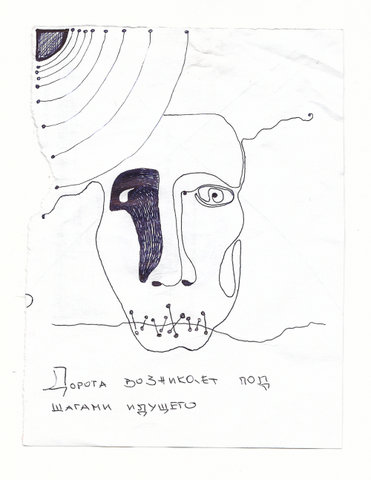 Дорога возникает под
шагами идущего